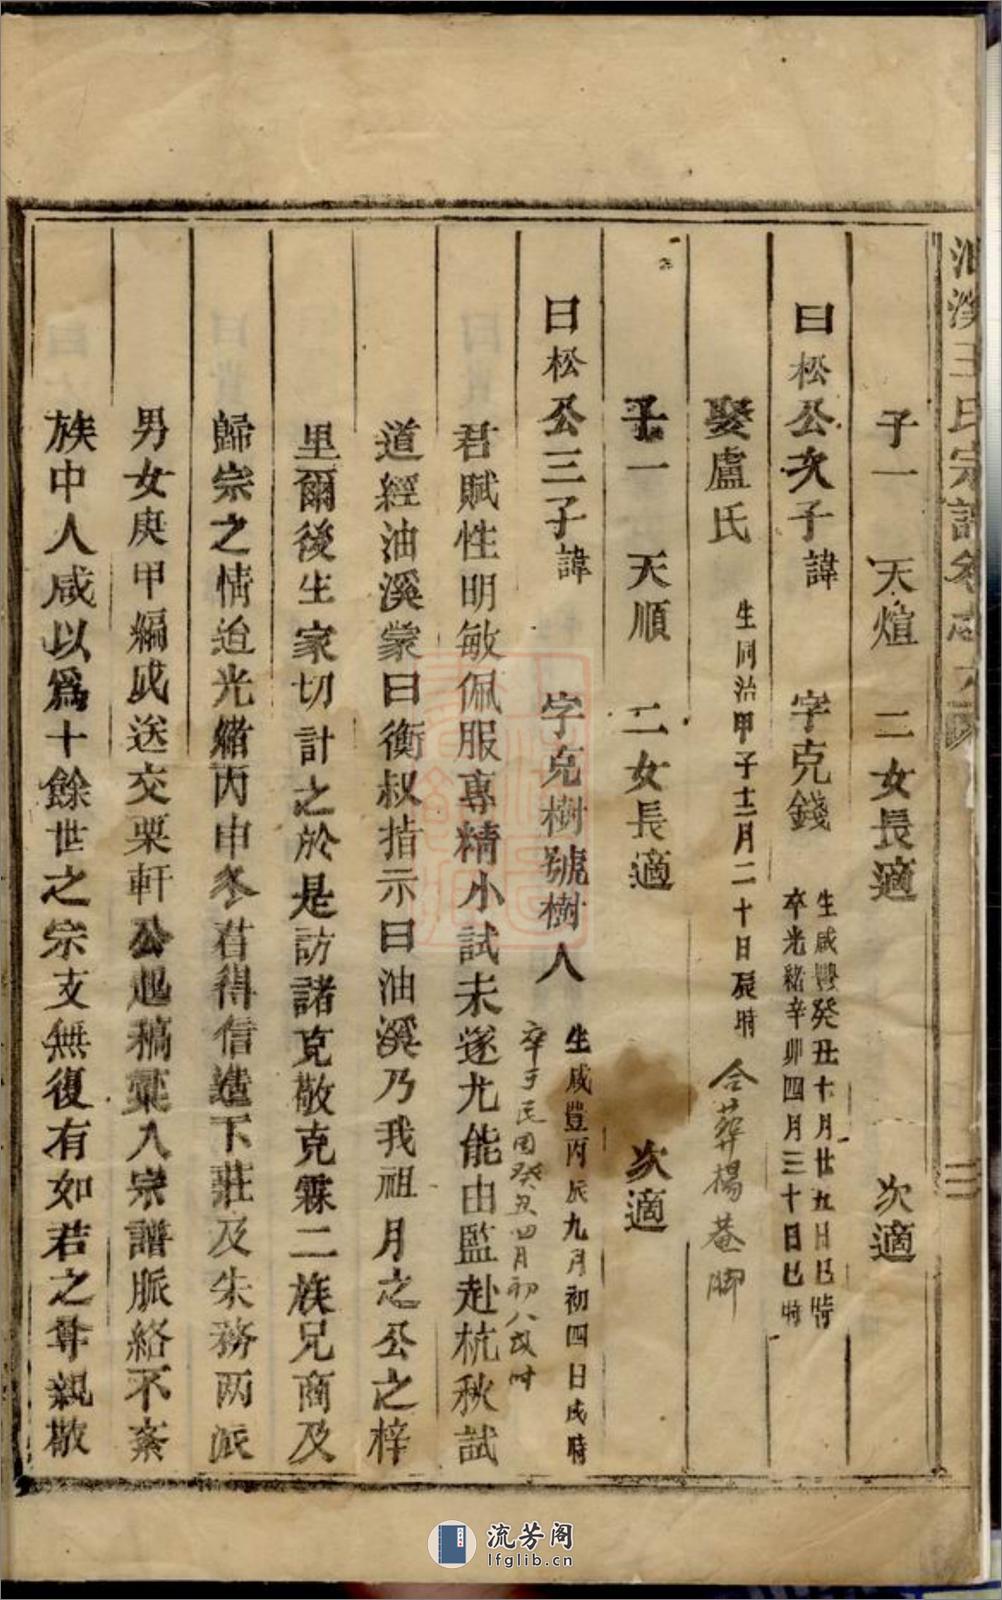 油溪王氏宗譜卷
子一　天煊　二女長適　次適
曰松公次子諱　字克錢　生咸豐癸丑十月廿九日巳時
卒光緒辛卯四月三十日巳時
娶盧氏　生同治甲子十二月二十日辰時　合葬楊菴脚
子一　天順　二女長適　次適
曰松公三子諱　字克樹號樹人　生咸豐丙辰九月初四日戌時
卒于民国癸丑四月初八戌时
君賦性明敏佩服專精小試未遂尤能由監赴杭秋試
道經油溪蒙曰衡叔指示曰油溪乃我祖月之公之梓
里爾後生家切計之於是訪諸克敬克霖二族兄商及
歸宗之情迨光緒丙申冬君得信造下莊及朱務两派
男女庚甲編成送交栗軒公起稿彙入宗譜脈絡不紊
族中人咸以爲十餘世之宗支無復有如若之尊親敬
流芳阁
lfglib.cn